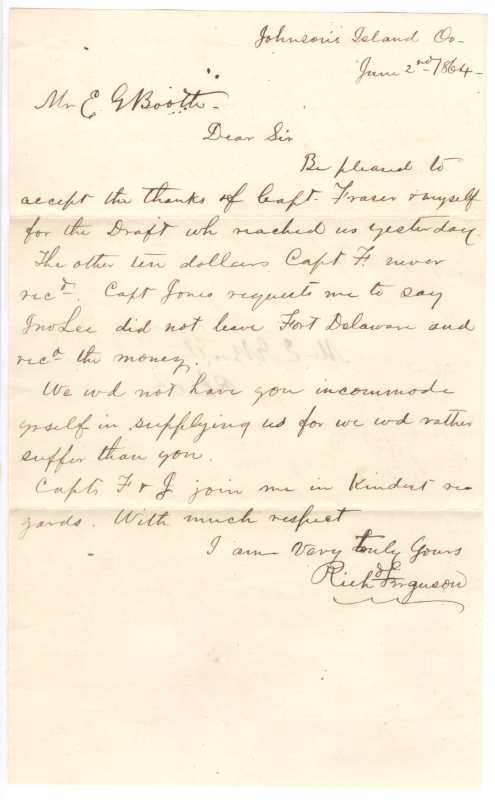 Johnson's Island Oo-
June 2nd/1864-
Mr E G Booth-
Dear Sir
Be pleased to
accept the thanks of Capt. Fraser & myself
for the Draft wh reached us yesterday.
The other ten dollars Capt F. never
recd. Capt Jones requests me to say
Jno Lee did not leave Fort Delaware and
recd the money.
We wd not have you incommode
yrself in supplying us for we wd rather
suffer than you.
Capts F & J join me in Kindest re
gards. With much respect
I am Very truly Yours
Richd Ferguson